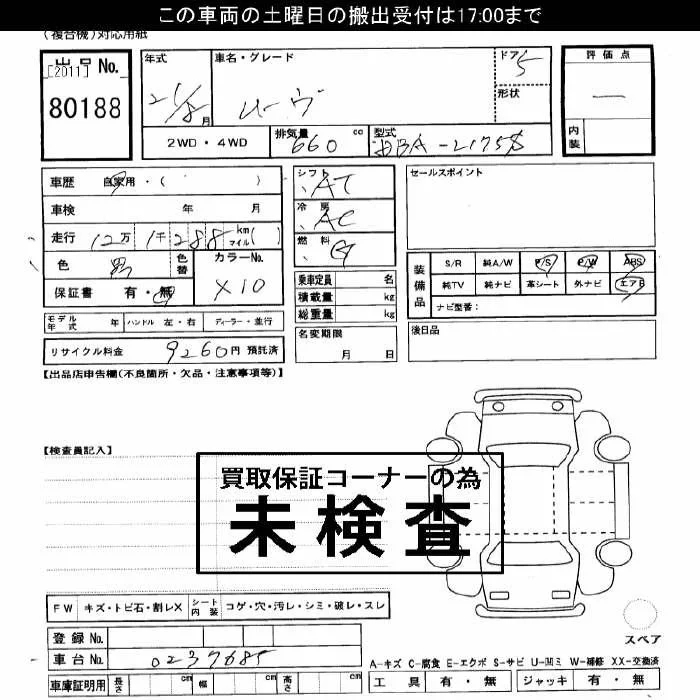 この車両の土曜日の搬出受付は17:00まで
(複合機)対応用紙
出品No. [2011]
80188
年式 21/8月
車名・グレード ムーヴ
ドア 5
形状
2WD・4WD
排気量 660 cc
型式 DBA-L175S
評価点 —
内装
車歴 自家用・( )
車検 年 月
走行 12万1千288 km マイル( )
色 黒 色替
カラーNo. X10
保証書 有・無
モデル年式 年 ハンドル 左・右 ディーラー・並行
リサイクル料金 9260円 預託済
シフト AT
冷房 AC
燃料 G
乗車定員 名
積載量 kg
総重量 kg
名変期限
月 日
セールスポイント
装備品
S/R 純A/W P/S P/W ABS
純TV 純ナビ 革シート 外ナビ エアB
ナビ型番:
後日品
【出品店申告欄(不良箇所・欠品・注意事項等)】
【検査員記入】
買取保証コーナーの為
未検査
FW キズ・トビ石・割レX シート内装 コゲ・穴・汚レ・シミ・破レ・スレ
登録No.
車台No. 0237685
車庫証明用 長さ cm 幅 cm 高さ cm
スペア
A-キズ C-腐食 E-エクボ S-サビ U-凹ミ W-補修 XX-交換済
工具 有・無 ジャッキ 有・無